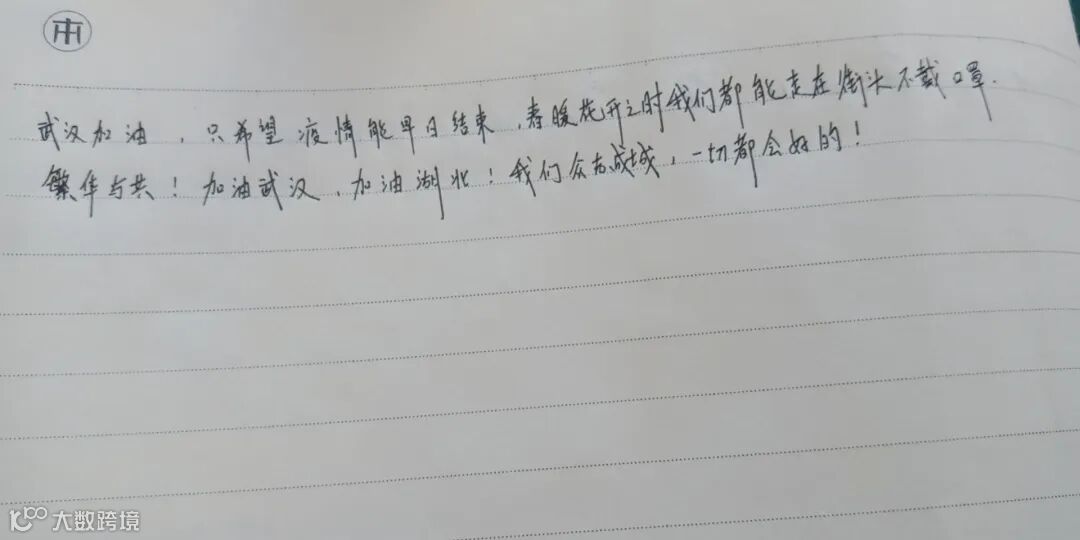 武汉加油，只希望疫情能早日结束，春暖花开之时我们都能走在街头不戴口罩.
繁华与共！加油武汉，加油湖北！我们众志成城，一切都会好的！
大数跨境